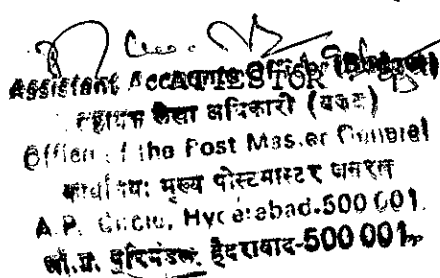 Assistant Accounts Officer (Budget)
ATTESTOR
सहायक लेखा अधिकारी (बजट)
Office of the Post Master General
कार्यालय: मुख्य पोस्टमास्टर जनरल
A.P. Circle, Hyderabad-500 001.
आं.प्र. परिमंडल, हैदराबाद-500 001.